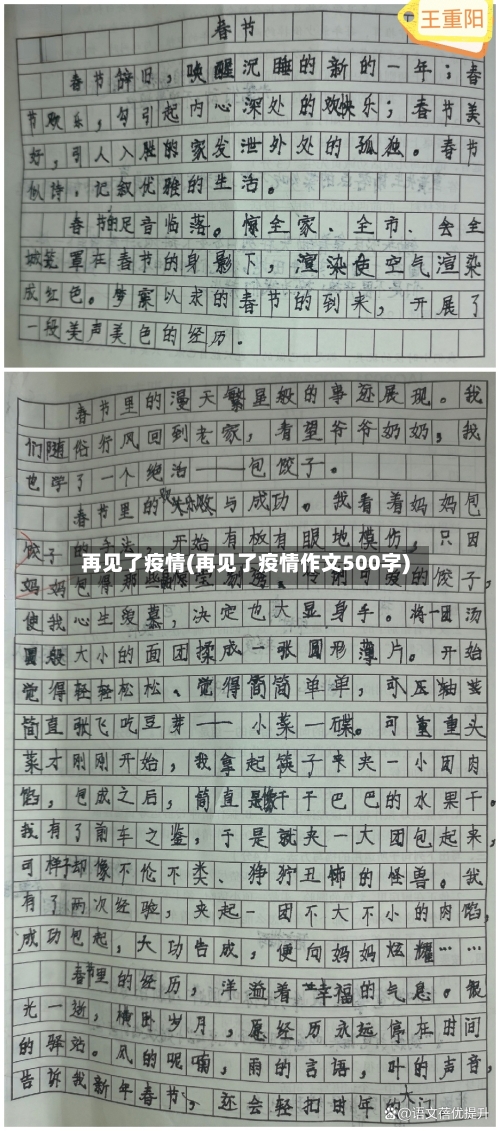 王重阳
春节
春节辞旧，唤醒沉睡的新的一年；春
节欢乐，勾引起内心深处的欢快乐；春节美
好，引人入胜的家发泄外处的孤独。春节
似诗，记叙优雅的生活。
春节的足音临落。惊全家、全市、会全
城笼罩在春节的身影下，渲染使空气渲染
成红色。梦寐以求的春节的到来，开展了
一段美声美色的经历。
春节里的漫天繁星般的事迹展现。我
们随俗行风回到老家，看望爷爷奶奶，我
也学了一个绝活——包饺子。
春节里的失败与成功。我看着妈妈包
饺子的手法，开始有板有眼地模仿，只因
再见了疫情(再见了疫情作文500字)
妈妈包得那 可爱的饺子，
使我心生爱慕，决定也大显身手。将一团汤
圆般大小的面团揉成一张圆形薄片。开始
觉得轻轻松松、觉得简简单单，可
简直张飞吃豆芽——小菜一碟。可重重头
菜才刚刚开始，我拿起筷子来夹一小团肉
馅，包成之后，简直是像干干巴巴的水果干。
我有了前车之鉴，于是就夹一大团包起来，
可样子却像不伦不类、狰狞丑怖的怪兽。我
有了两次经验，夹起一团不大不小的肉馅，
成功包起，大功告成，便向妈妈炫耀……
春节里的经历，洋溢着“幸福的气息。银
光一逝，横卧岁月，愿经历永远停在时间
的驿站。风的呢喃，雨的言语，叶的声音，
告诉我新年春节，还会轻扣时年的大门
@语文蓓优提升